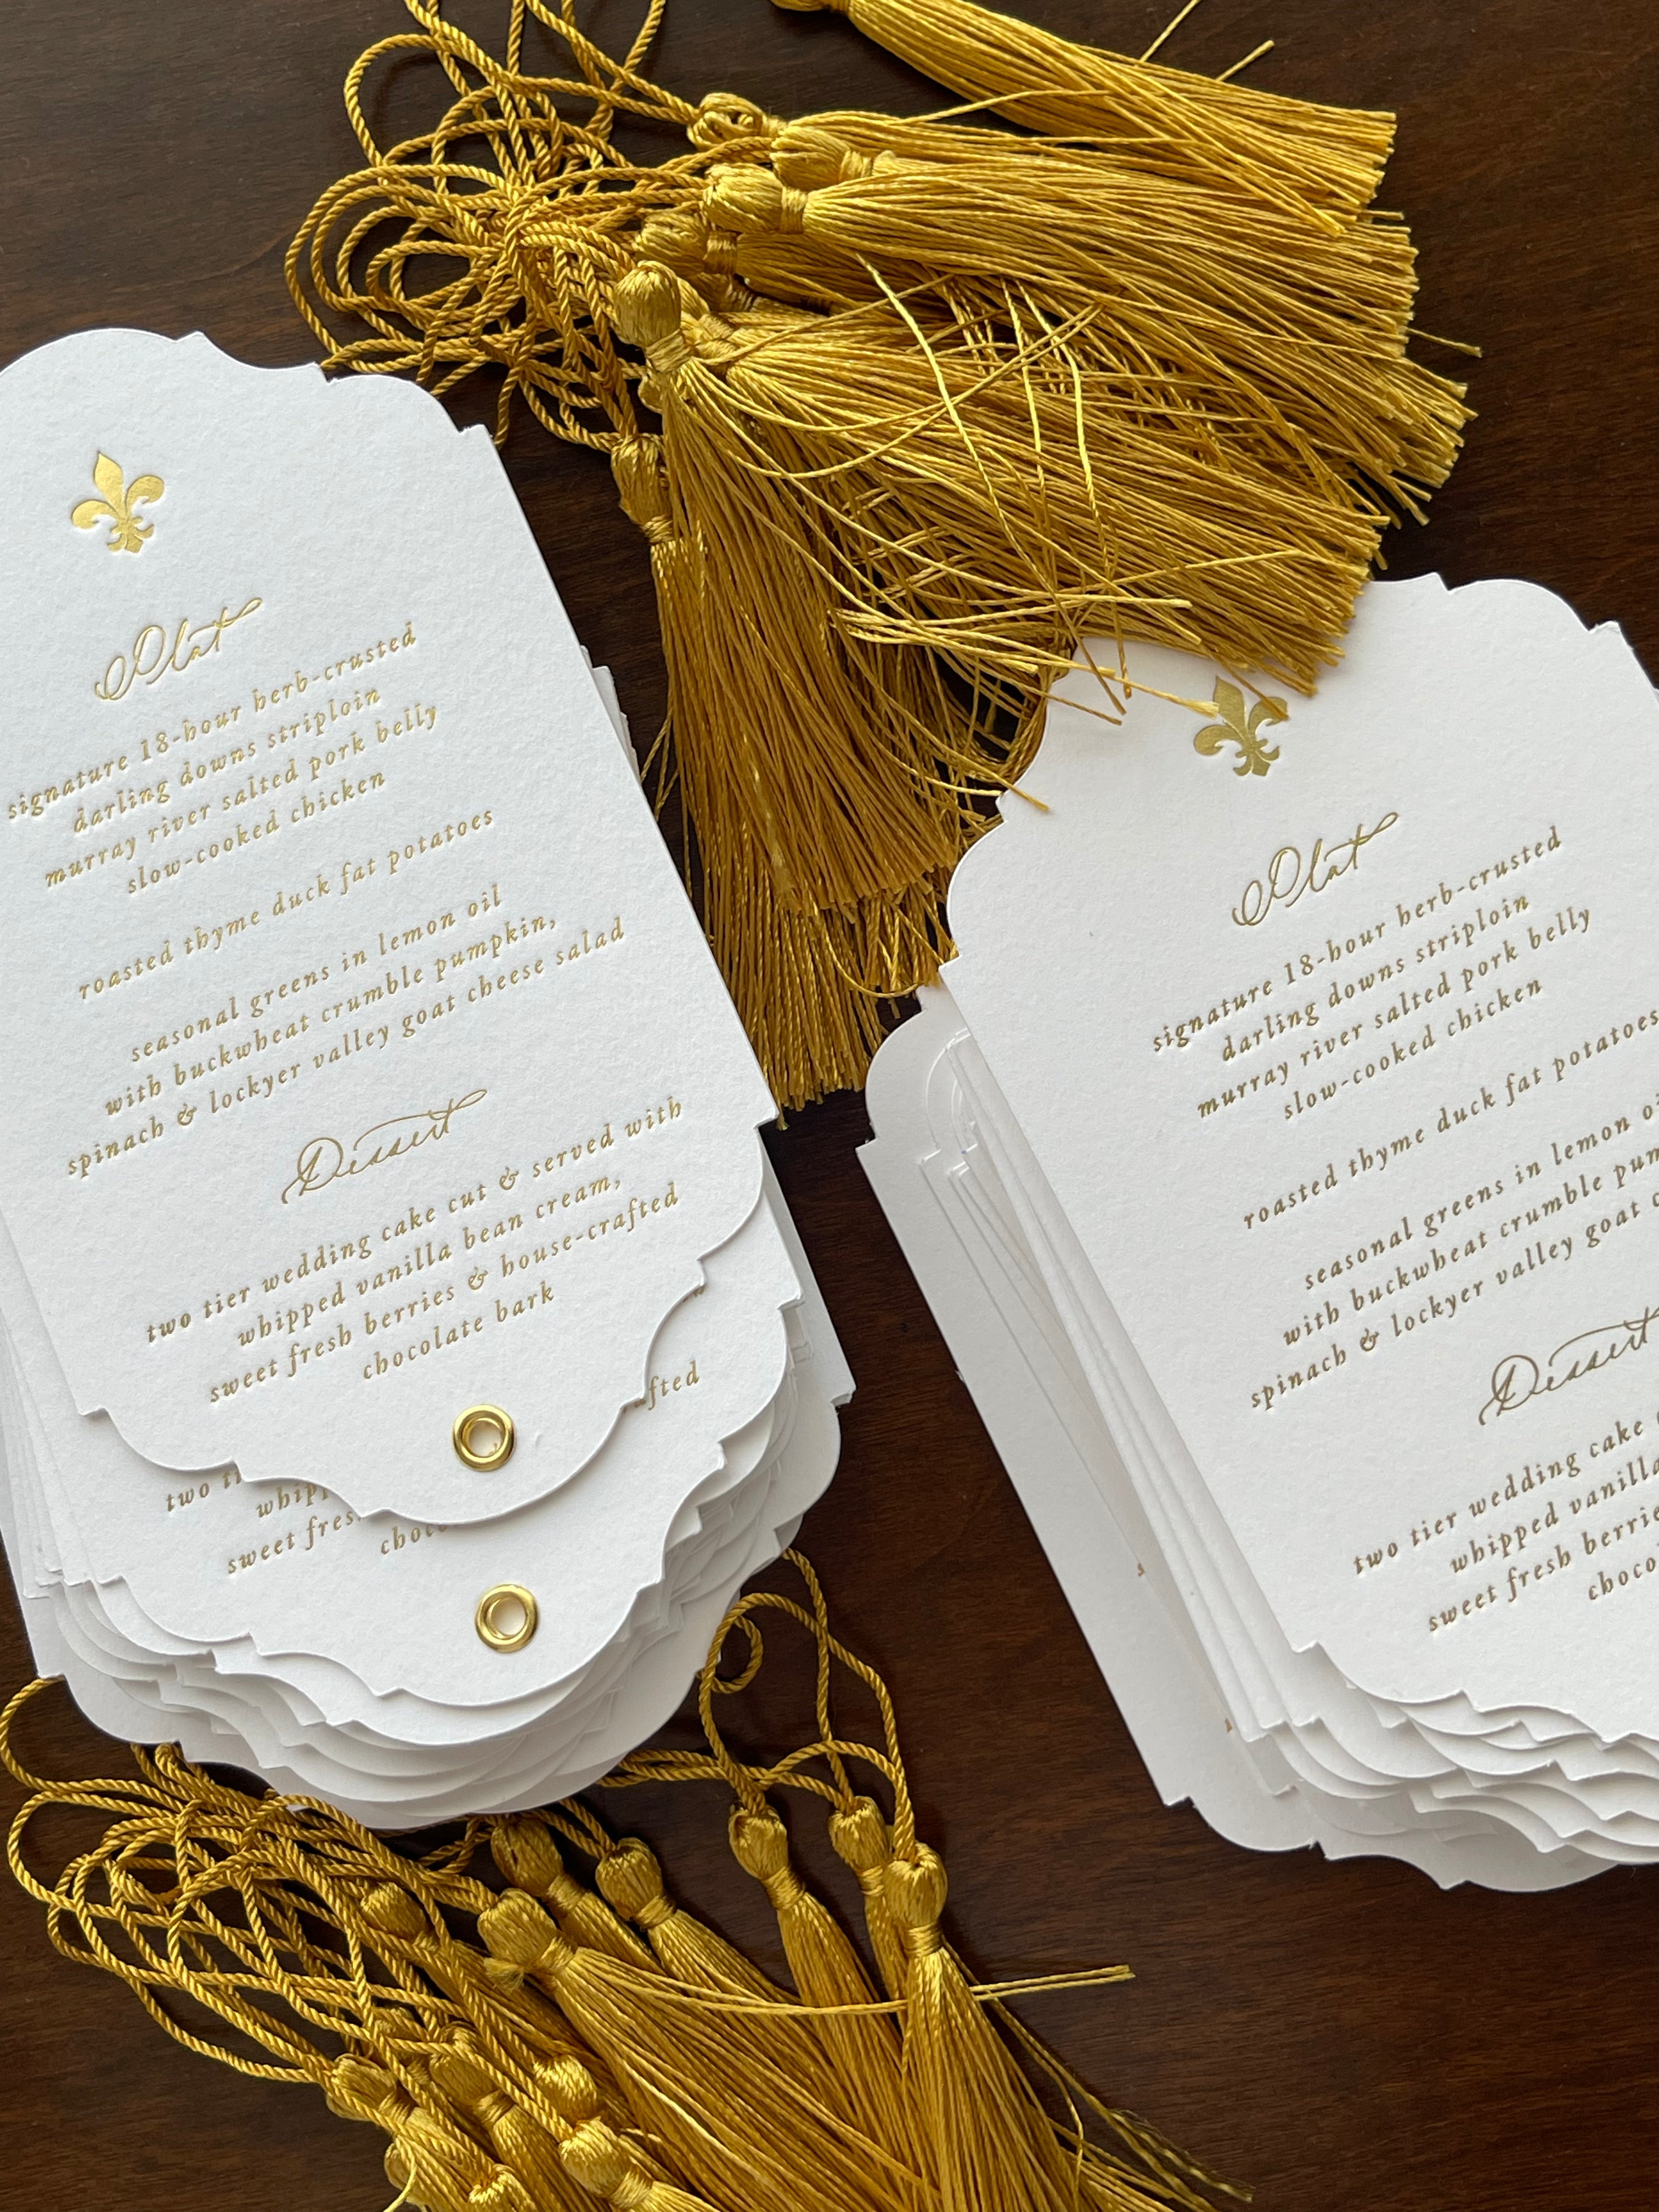 Plat
signature 18-hour herb-crusted
darling downs striploin
murray river salted pork belly
slow-cooked chicken
roasted thyme duck fat potatoes
seasonal greens in lemon oil
with buckwheat crumble pumpkin,
spinach & lockyer valley goat cheese salad
Dessert
two tier wedding cake cut & served with
whipped vanilla bean cream,
sweet fresh berries & house-crafted
chocolate bark
two
whipp
sweet fres
choc
fted
Plat
signature 18-hour herb-crusted
darling downs striploin
murray river salted pork belly
slow-cooked chicken
roasted thyme duck fat potatoes
seasonal greens in lemon
with buckwheat crumble pum
spinach & lockyer valley goat
Dessert
two tier wedding cake
whipped vanilla
sweet fresh berrie
choco